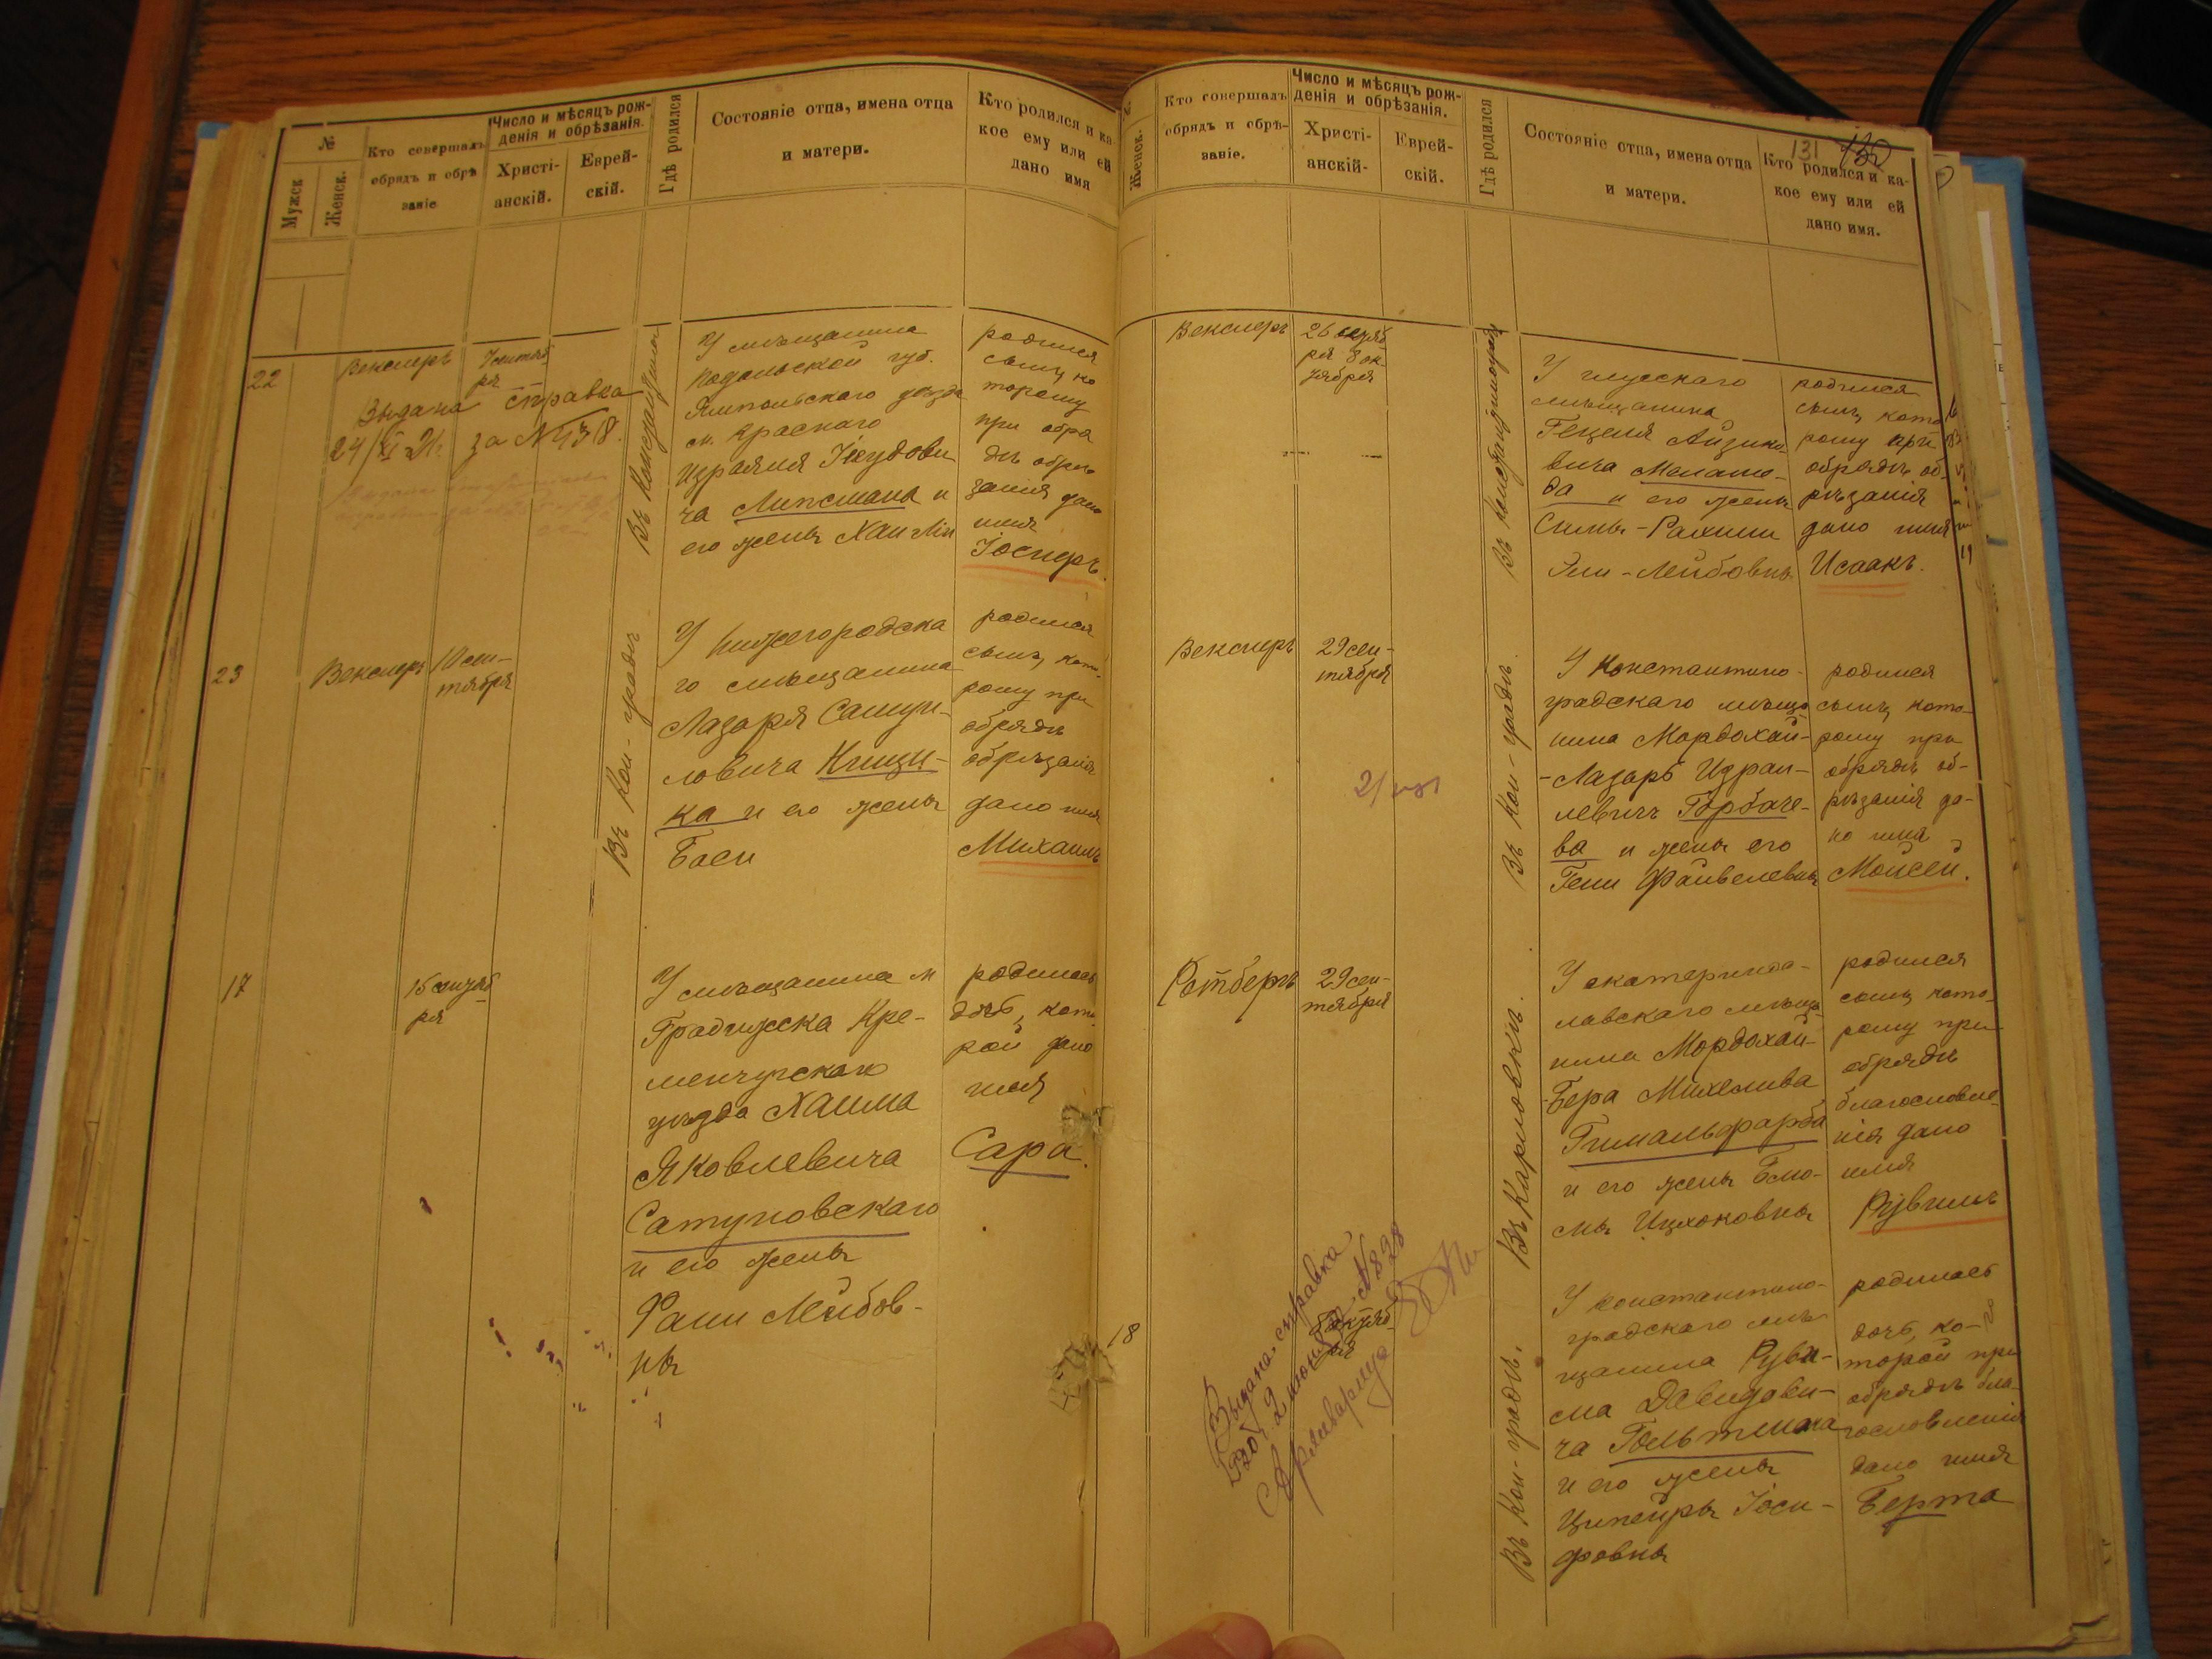 №
Мужск
Женск.
Кто совершалъ
обрядъ и обрѣ
заніе
Число и мѣсяцъ рож-
денія и обрѣзанія.
Христі-
анскій.
Еврей-
скій.
Гдѣ родился
Состояніе отца, имена отца
и матери.
Кто родился и ка
кое ему или ей
дано имя
22
Векслеръ
Выдана справка
24/XI 21. за №
У мѣщанина
Подольской губ.
Ямпольскаго уѣзда
м. Краснаго
Израиля Іегудови
ча Липсмана и
его жены Хаи
родился
сынъ ко
торому
при обря
дѣ обрѣ
занія дано
имя
Іосифъ.
23
Векслеръ
10 сен-
тября
Въ Кон-градѣ
У Нижегородска
го мѣщанина
Лазаря Самуи-
ловича
ка и его жены
Баси
родился
сынъ, кото-
рому при
обрядѣ
обрѣзанія
дано имя
Михаилъ
17
15 сентяб
ря
У мѣщанина м
Градижска Кре-
менчугскаго
уѣзда Хаима
Яковлевича
Сатуновскаго
и его жены
Фани Лейбов-
ны
родилась
дочь, кото-
рой дано
имя
Сара.
Женск.
Кто совершалъ
обрядъ и обрѣ-
заніе.
Число и мѣсяцъ рож-
денія и обрѣзанія.
Христі-
анскій-
Еврей-
скій.
Гдѣ родился
Состояніе отца, имена отца
и матери.
131 130
Кто родился и ка-
кое ему или ей
дано имя.
Векслеръ
26 сентяб
ря 3 ок-
тября
У глускаго
мѣщанина
Гецеля Айзико-
вича Меламе-
да и его жены
Симы-Рахили
Эли-Лейбовны
родился
сынъ, кото
рому при
обрядѣ об
рѣзанія
дано имя
Исаакъ.
Векслеръ
29 сен-
тября
Въ Кон-градѣ.
У Константино-
градскаго мѣща
нина Мордохай-
-Лазарь Израи-
левичъ Горбаче-
ва и жены его
Гени Файвелевны
родился
сынъ, кото-
рому при
обрядѣ об-
рѣзанія да-
но имя
Моисей.
Ротбергъ
29 сен-
тября
Въ Карловкѣ.
У екатерино-
лавскаго мѣща
нина Мордохай-
-Бера Михелива
Гимельфарба
и его жены Блю-
мы Ицхоковны
родился
сынъ кото-
рому при
обрядѣ
благословле-
нія дано
имя
Рувимъ
18
Выдана справка
2 іюня № 828
октяб-
ря
Въ Кон-градѣ.
У константино-
градскаго мѣ
щанина Руви-
ма Давидови-
ча Гольтмана
и его жены
Ципейры Іоси-
фовны
родилась
дочь, ко-
торой при
обрядѣ бла-
гословленія
дано имя
Берта